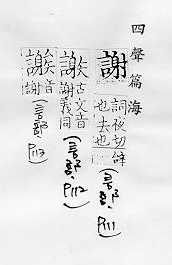 四聲篇海
謝
詞夜切辝
也去也
(言部, P111)
古文音
謝義同
(言部, P112)
音
謝
(言部, P113)